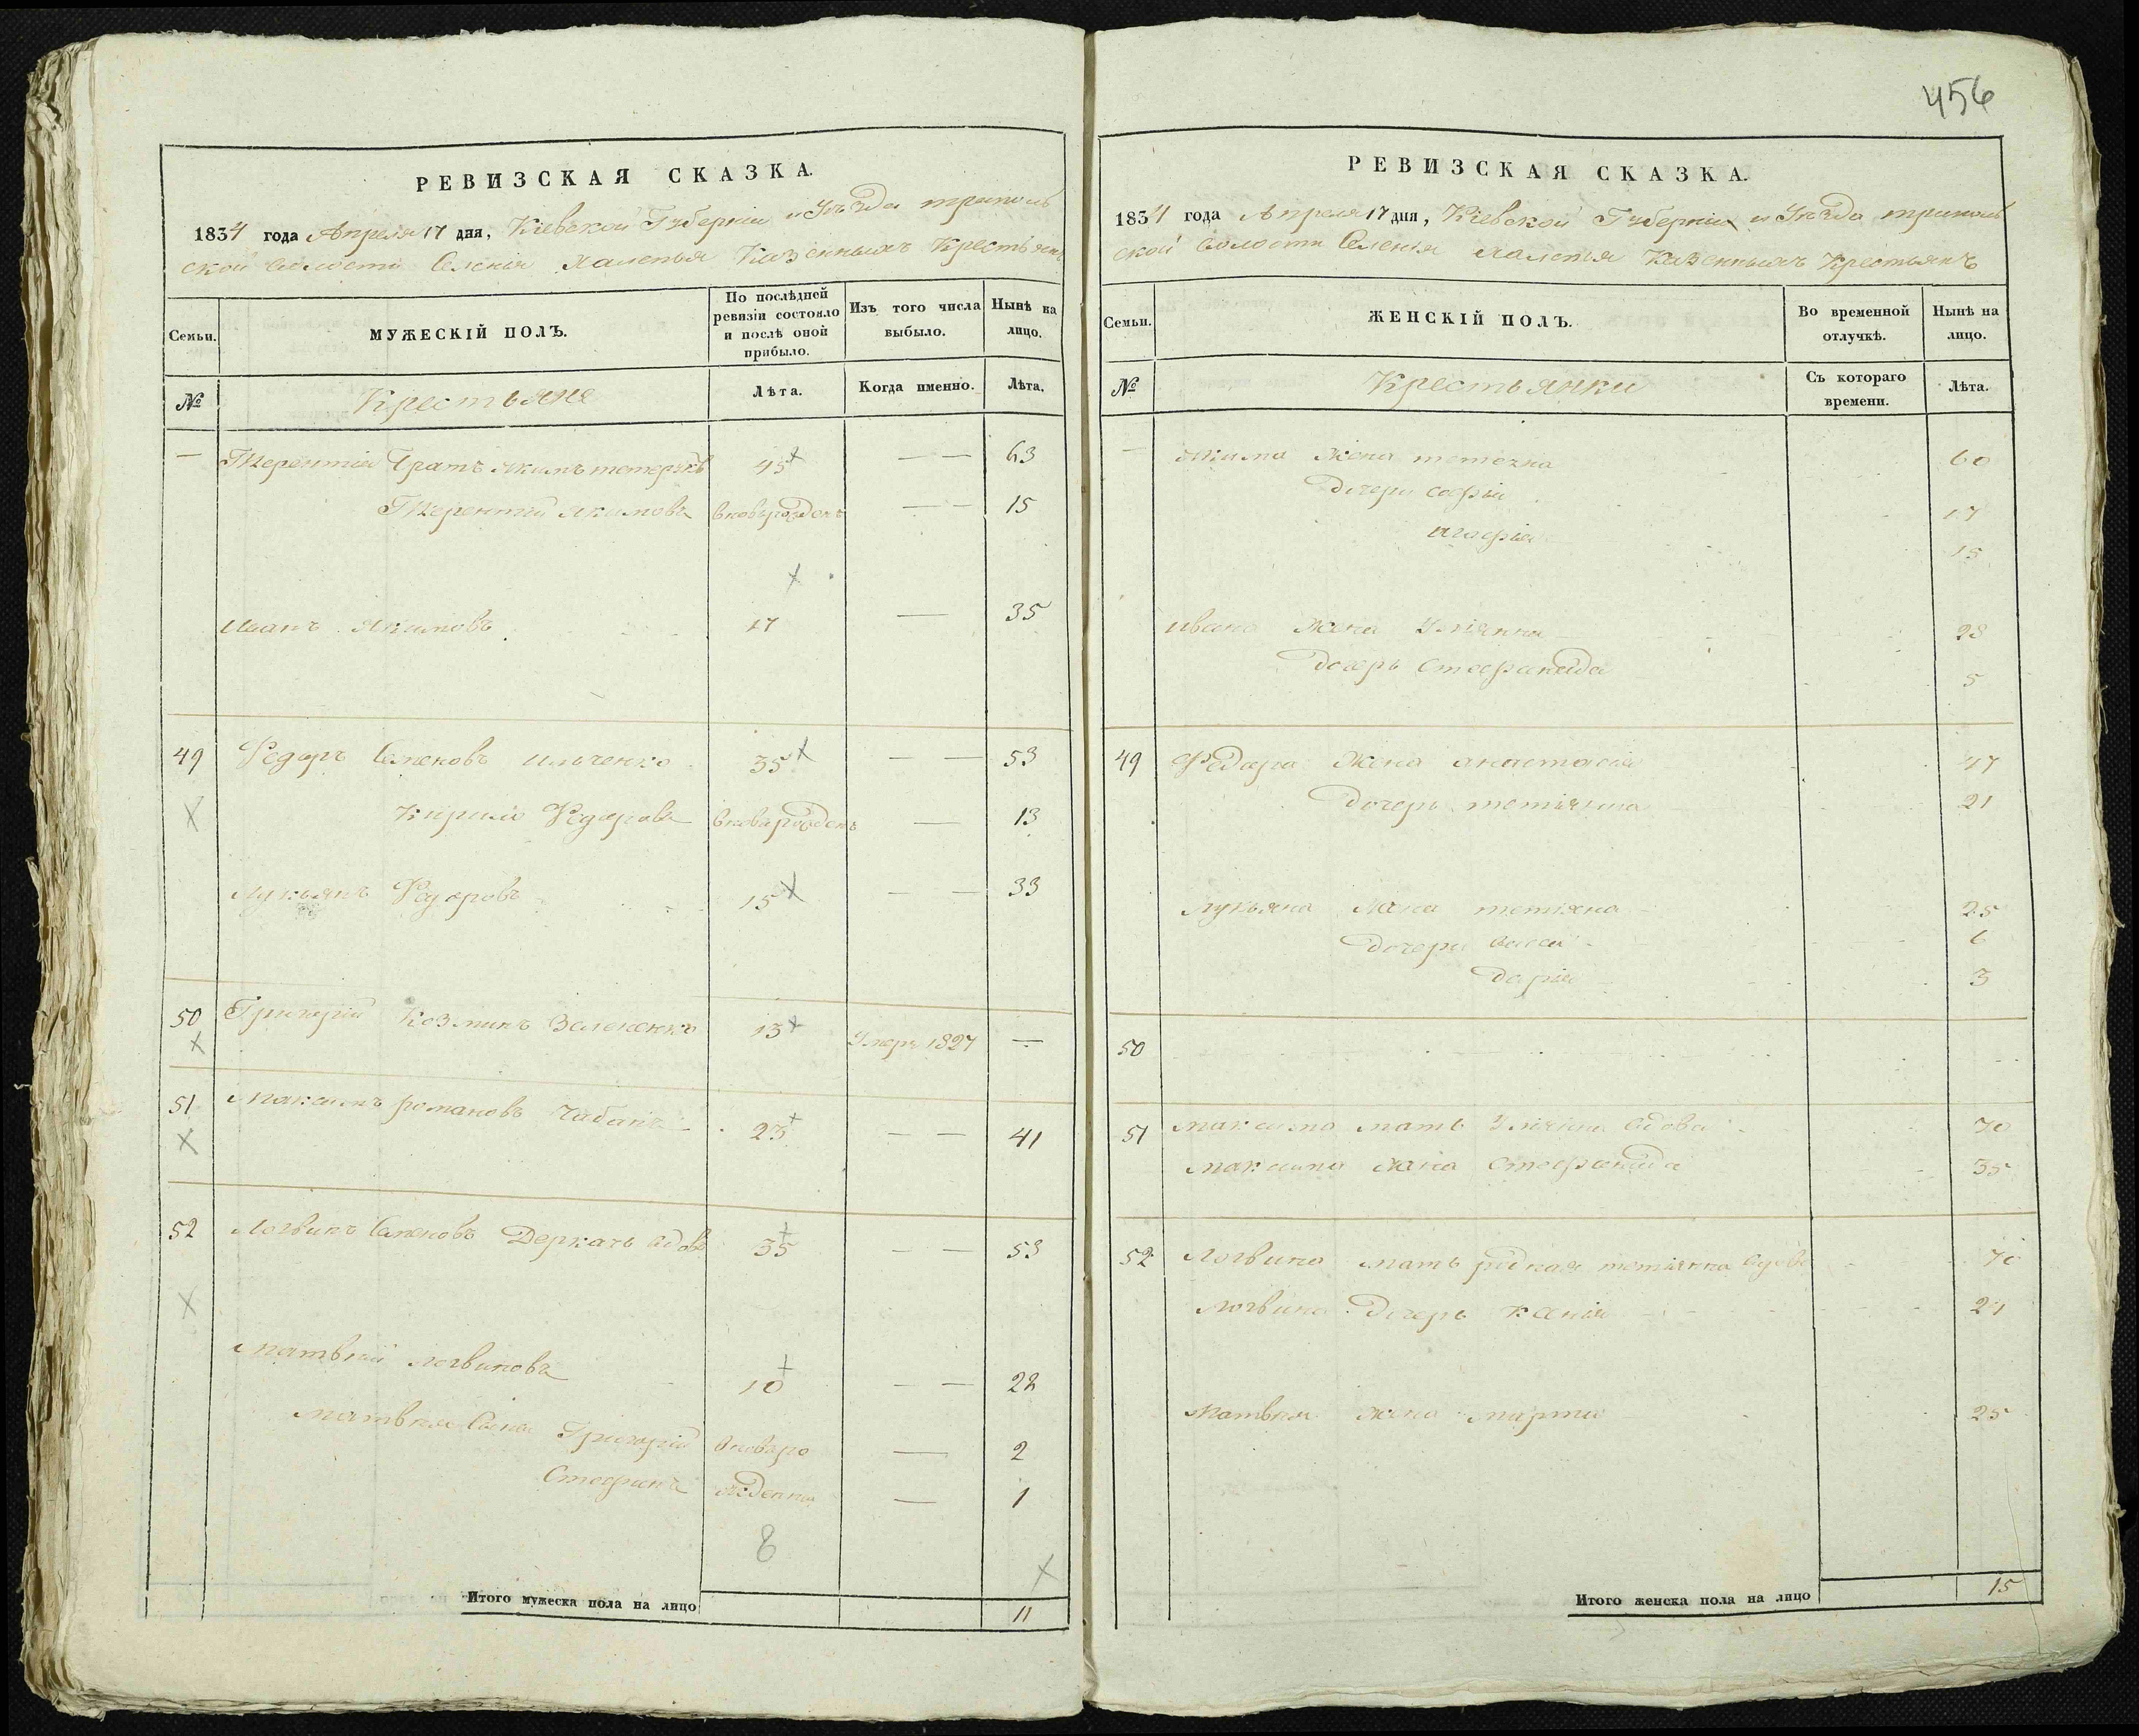 456
РЕВИЗСКАЯ СКАЗКА.
1834 года Апреля 17 дня, Кіевской Губерніи и Уѣзда триполь
ской волости Селенія Халепья Казенныхъ Крестьянъ
Семьи.
МУЖЕСКІЙ ПОЛЪ.
По послѣдней ревизіи состояло и послѣ оной прибыло.
Изъ того числа выбыло.
Нынѣ на лицо.
№
Крестьяне
Лѣта.
Когда именно.
Лѣта.
— Терентія братъ Якимъ 45 — — 63
Терентий Якимовъ — — 15
Иванъ Якимовъ 17 — 35
49 Федоръ Семеновъ Ильченко 35 — — 53
Кирило Федоровъ — 13
Лукьянъ Федоровъ 15 — — 33
50 Григорій Козминъ Зелененко 13 Умеръ 1827 —
51 Максимъ романовъ Чабанъ 23 — — 41
52 Логвинъ Семеновъ Деркачь вдовъ 35 — — 53
Матвѣй Логвиновъ 10 — — 22
Матвѣя Сыны Григорій вновь ро — 2
Стефанъ жденны — 1
8
Итого мужеска пола на лицо 11
РЕВИЗСКАЯ СКАЗКА.
1834 года Апреля 17 дня, Кіевской Губерніи и Уѣзда триполь
ской волости Селенія Халепья Казенныхъ Крестьянъ
Семьи.
ЖЕНСКІЙ ПОЛЪ.
Во временной отлучкѣ.
Нынѣ на лицо.
№
Крестьянки
Съ котораго времени.
Лѣта.
— Якима жена 60
Дочери софія 17
Агафія 15
Ивана жена Уліянна 28
Дочерь Стефанида 5
49 Федора Жена анастасія 47
Дочерь тетіянна 21
Лукьяна жена тетіяна 25
Дочери 6
Дарія 3
50
51 Максима мать Уліяна вдова 70
Максима жена Стефанида 35
52 Логвина мать родная тетіянна вдова 70
Логвина Дочерь Ксенія 21
Матвѣя жена марта 25
Итого женска пола на лицо 15